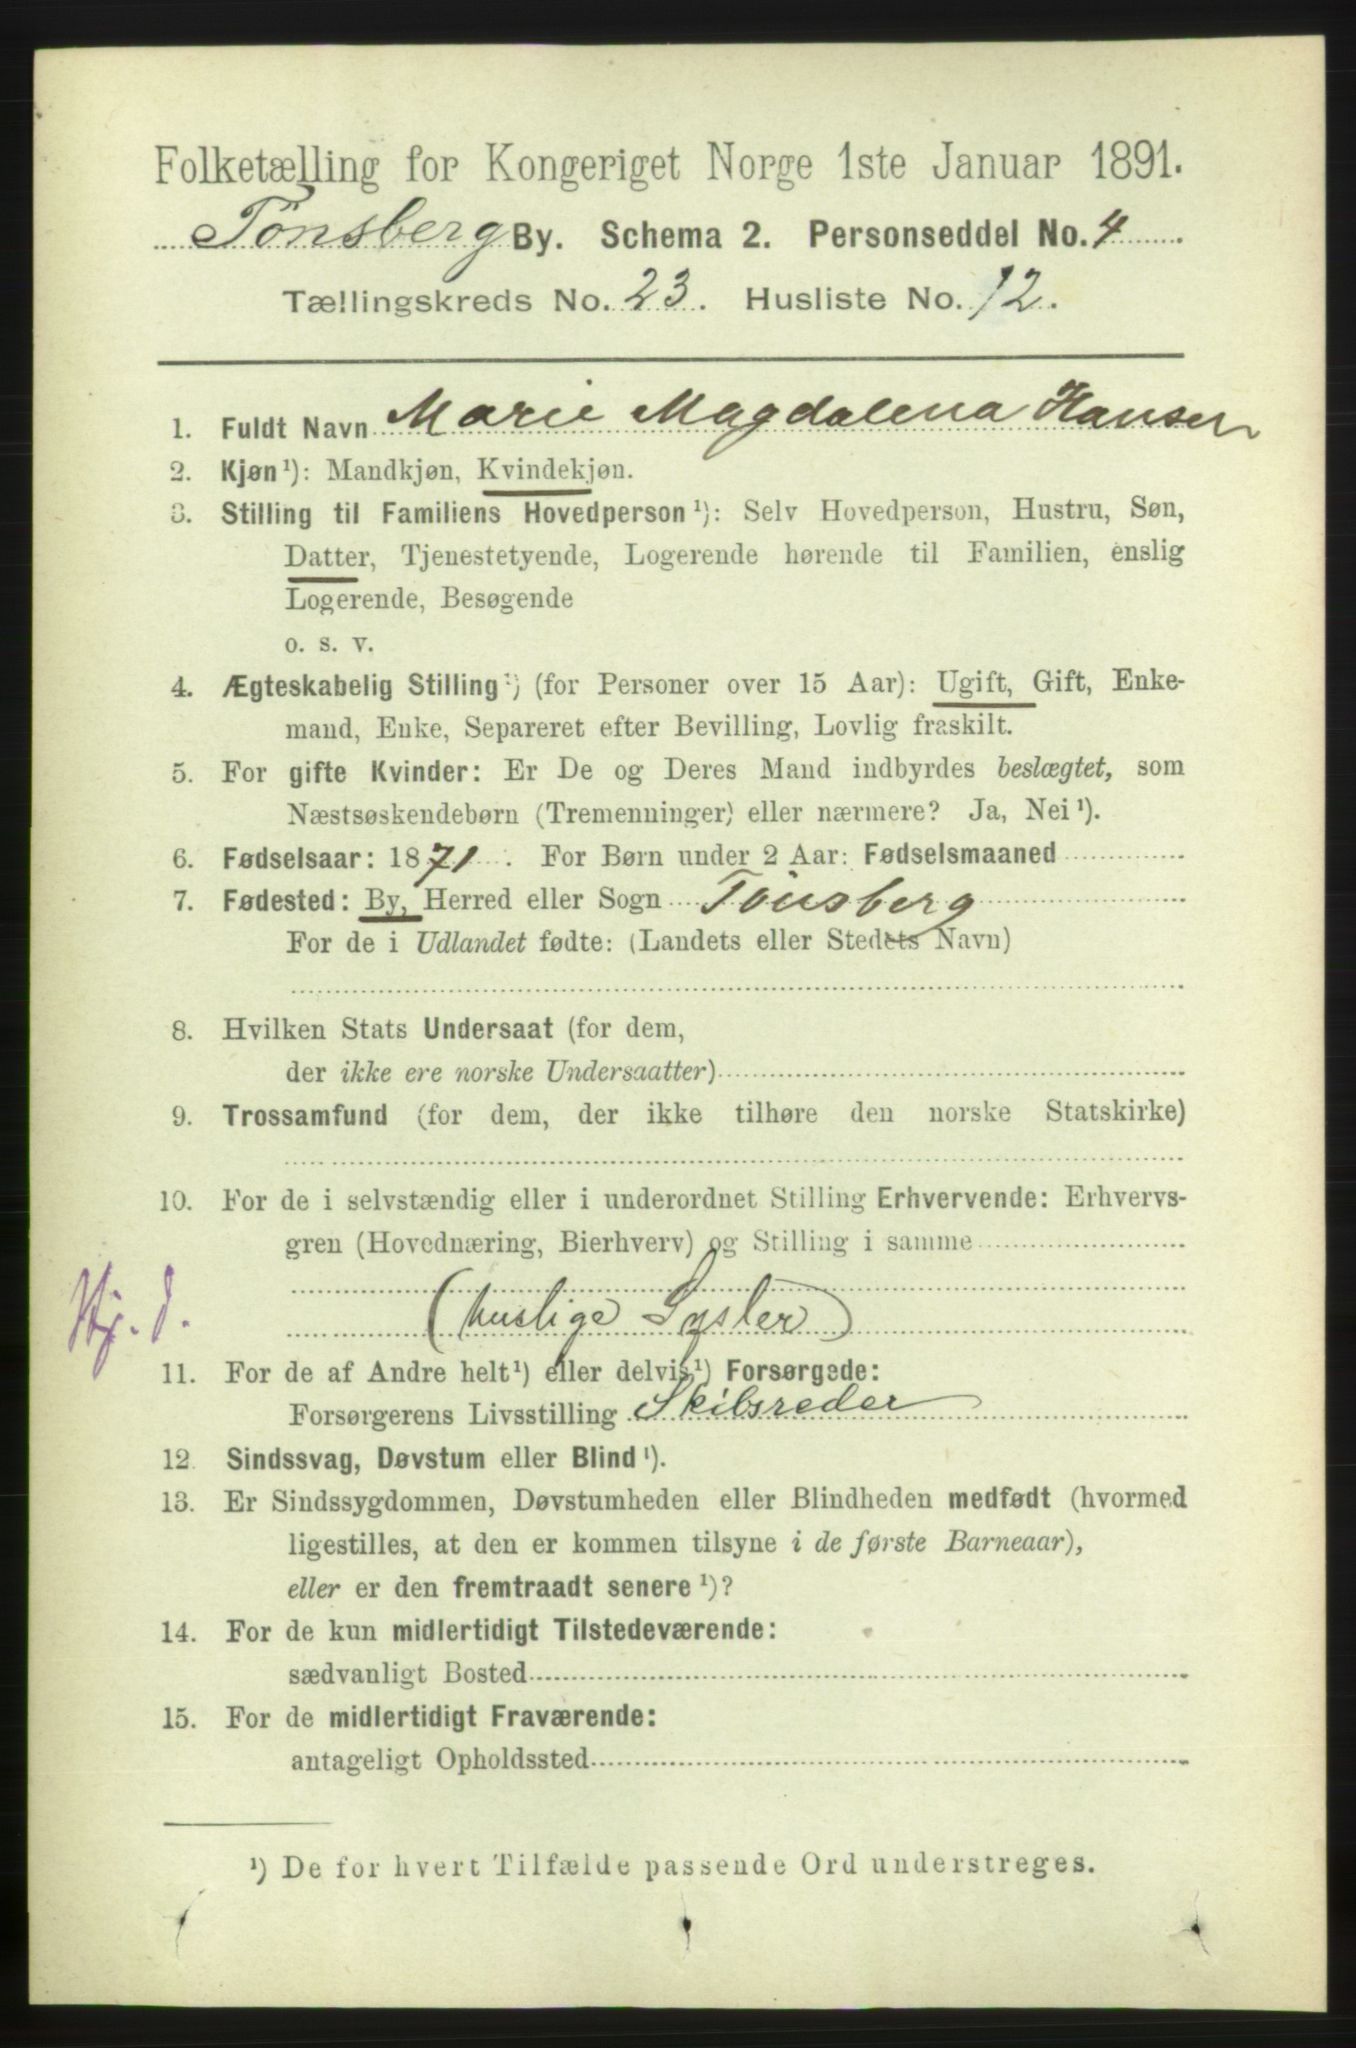 Folketælling for Kongeriget Norge 1ste Januar 1891.
Tönsberg By. Schema 2. Personseddel No. 4
Tællingskreds No. 23. Husliste No. 12.
1. Fuldt Navn Marie Magdalena Hansen
2. Kjøn¹): Mandkjøn, Kvindekjøn.
3. Stilling til Familiens Hovedperson¹): Selv Hovedperson, Hustru, Søn,
Datter, Tjenestetyende, Logerende hørende til Familien, enslig
Logerende, Besøgende
o. s. v.
4. Ægteskabelig Stilling¹) (for Personer over 15 Aar): Ugift, Gift, Enke-
mand, Enke, Separeret efter Bevilling, Lovlig fraskilt.
5. For gifte Kvinder: Er De og Deres Mand indbyrdes beslægtet, som
Næstsøskendebørn (Tremenninger) eller nærmere? Ja, Nei¹).
6. Fødselsaar: 1871. For Børn under 2 Aar: Fødselsmaaned
7. Fødested: By, Herred eller Sogn Tönsberg
For de i Udlandet fødte: (Landets eller Stedets Navn)
8. Hvilken Stats Undersaat (for dem,
der ikke ere norske Undersaatter)
9. Trossamfund (for dem, der ikke tilhøre den norske Statskirke)
10. For de i selvstændig eller i underordnet Stilling Erhvervende: Erhvervs-
gren (Hovednæring, Bierhverv) og Stilling i samme
(huslige Sysler)
Hj. d.
11. For de af Andre helt¹) eller delvis¹) Forsørgede:
Forsørgerens Livsstilling Skibsreder
12. Sindssvag, Døvstum eller Blind¹).
13. Er Sindssygdommen, Døvstumheden eller Blindheden medfødt (hvormed
ligestilles, at den er kommen tilsyne i de første Barneaar),
eller er den fremtraadt senere¹)?
14. For de kun midlertidigt Tilstedeværende:
sædvanligt Bosted
15. For de midlertidigt Fraværende:
antageligt Opholdssted
¹) De for hvert Tilfælde passende Ord understreges.